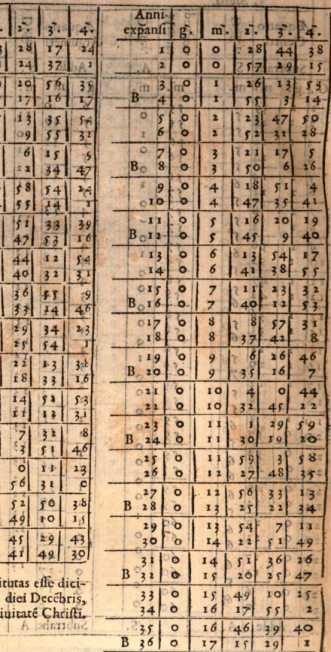 2. 3. 4.
28 17 24
24 37 1
20 56 35
17 16 17
13 35 54
9 55 31
6 25
2 34 47
58 54 24
55 14 1
51 33 39
47 53 16
44 12 54
40 32 31
36 9
33 14 46
29 34 23
25 54 1
22 13 38
18 33 16
14 52 53
11 12 31
7 32 8
3 51 46
0 11 23
56 31 0
52 50 38
49 10 15
45 29 43
41 49 30
titutas esse dici-
diei Decēbris,
iuitatē Christi.
Anni
expansi g. m. 2. 3. 4.
1 0 0 28 44 38
2 0 0 57 29 15
3 0 1 26 13 53
B 4 0 1 55 3 14
5 0 2 23 47 50
6 0 2 52 32 28
7 0 3 21 17 5
B 8 0 3 50 6 26
9 0 4 18 51 4
10 0 4 47 35 41
11 0 5 16 20 19
B 12 0 5 45 9 40
13 0 6 13 54 17
14 0 6 42 38 55
15 0 7 11 23 32
B 16 0 7 40 12 53
17 0 8 8 57 31
18 0 8 37 42 8
19 0 9 6 26 46
B 20 0 9 35 16 7
21 0 10 4 0 44
22 0 10 32 45 22
23 0 11 1 29 59
B 24 0 11 30 19 20
25 0 11 59 3 58
26 0 12 27 48 35
27 0 12 56 33 13
B 28 0 13 25 22 34
29 0 13 54 7 11
30 0 14 22 51 49
31 0 14 51 36 26
B 32 0 15 20 25 47
33 0 15 49 10 25
34 0 16 17 55 2
35 0 16 46 39 40
B 36 0 17 15 29 1